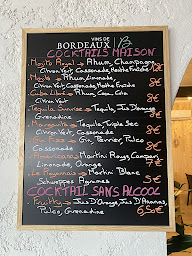 VINS DE
BORDEAUX
COCKTAILS MAISON
Mojito Royal → Rhum, Champagne,
Citron Vert, Cassonade, Menthe Fraîche
Mojito → Rhum,
Citron Vert, Limonade, Cassonade, Menthe Fraîche 8€
Cuba Libre → Rhum, Coca Cola
Citron Vert 8€
Tequila Sunrise → Tequila, Jus D'Orange
Grenadine 8€
Margarita → Tequila, Triple Sec
Citron Vert, Cassonade 8€
Gin Fizz → Gin, Perrier, Pulco
Cassonade 8€
Americano → Martini Rouge, Campari
Limonade, Orange 8€
Le → Martini Blanc
Schweppes Agrumes 5€
COCKTAIL SANS ALCOOL
Fruity → Jus D'Orange, Jus D'Ananas,
Pulco, Grenadine 6,50€